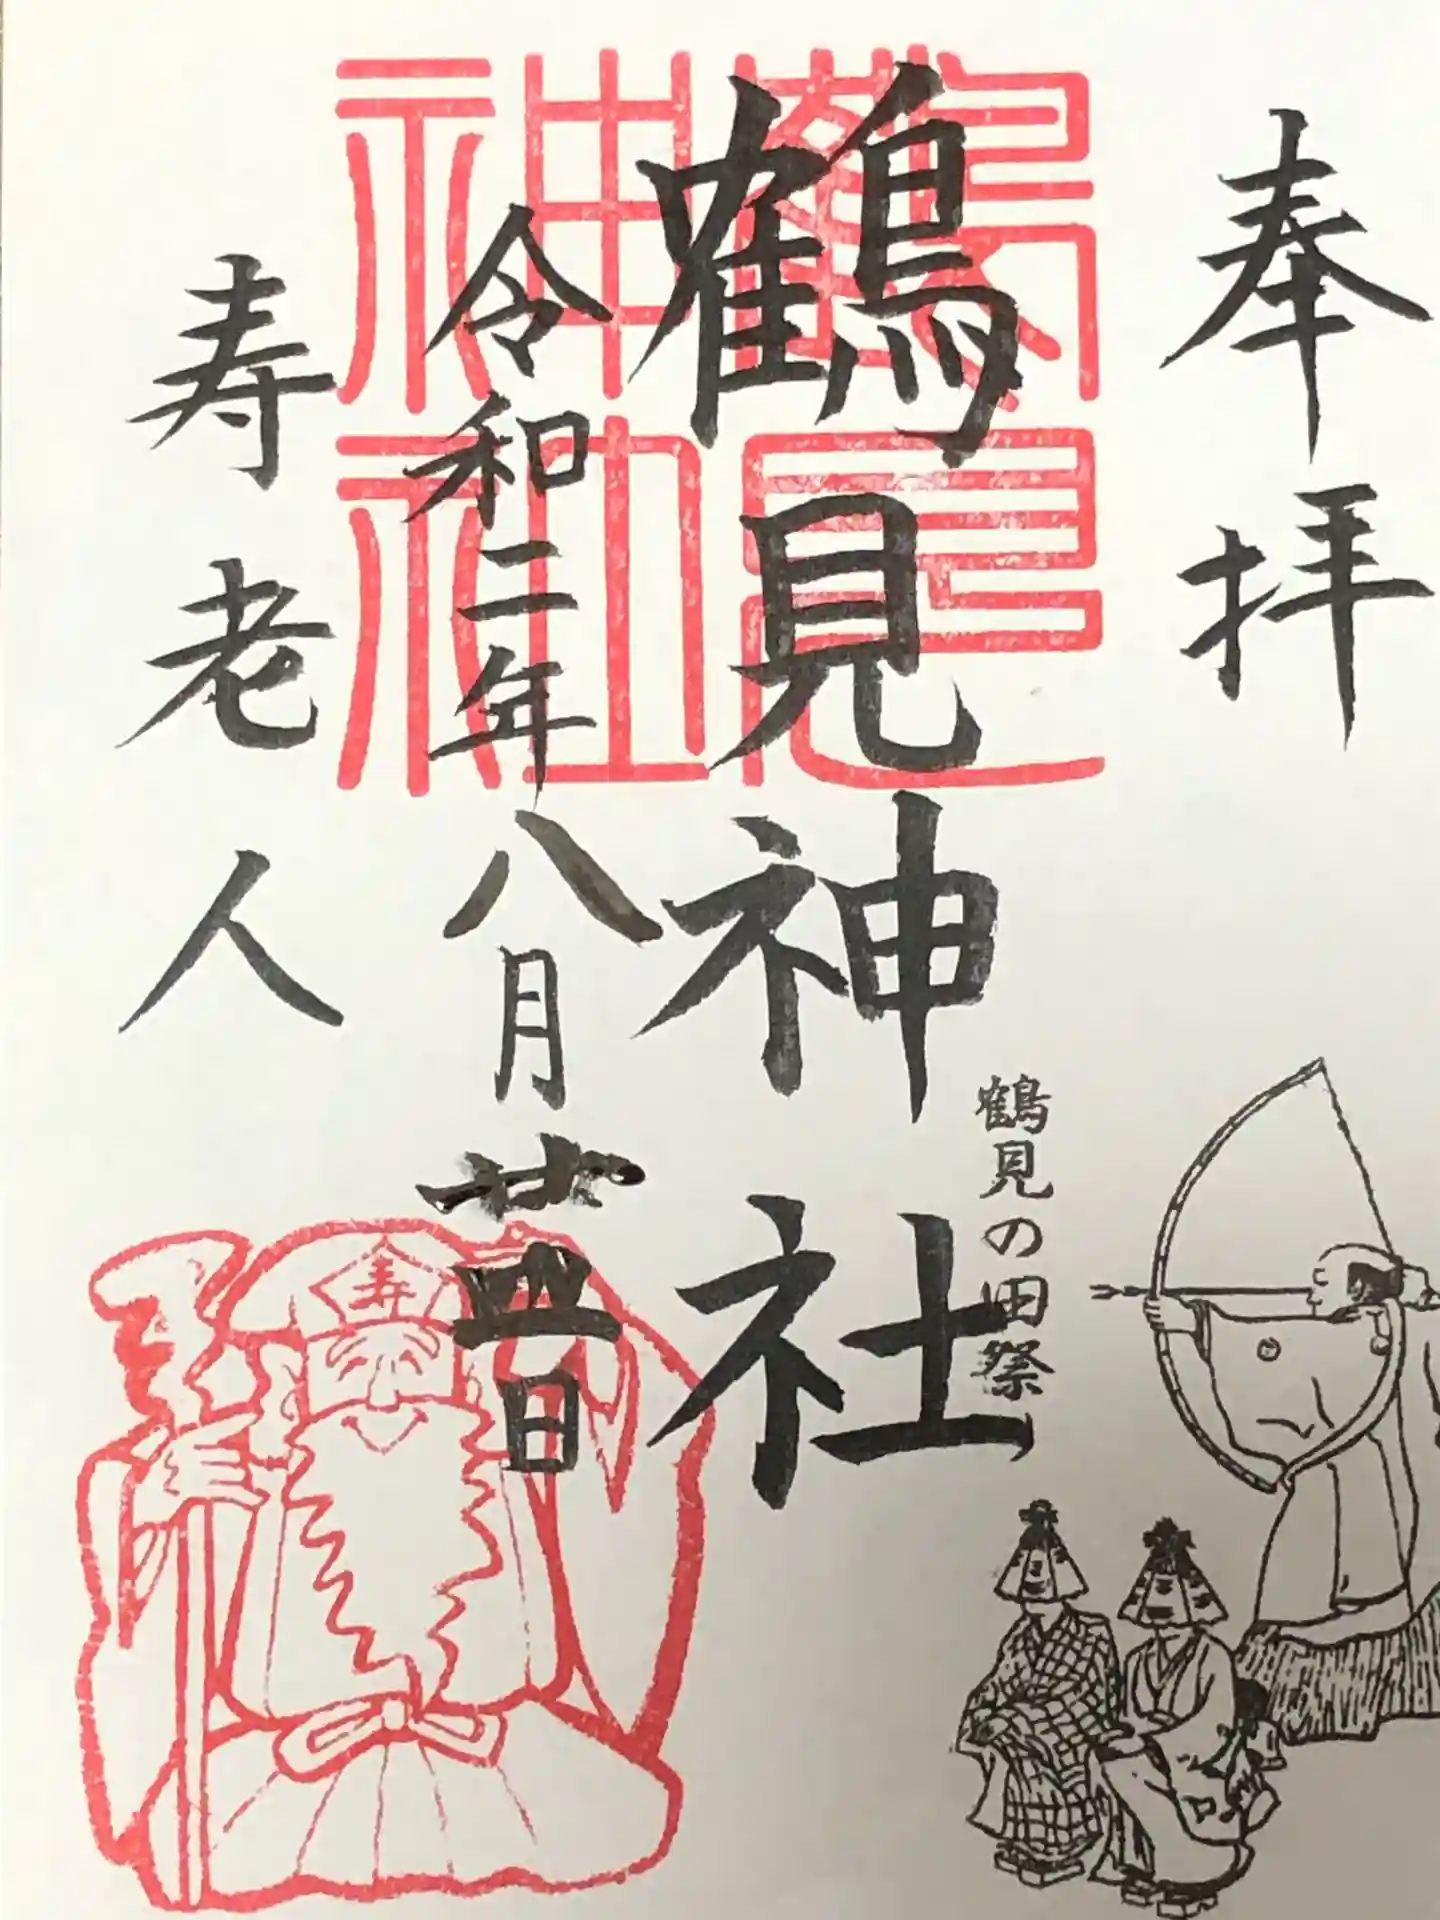 奉拝
鶴見神社
鶴見神社
鶴見の田祭り
令和二年八月廿四日
寿老人
寿